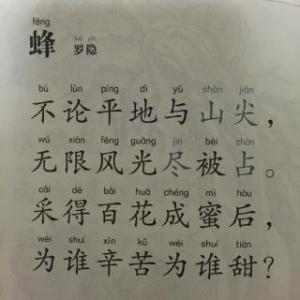 fēng
蜂
luó yǐn
罗隐
bù lùn píng dì yǔ shān jiān
不论平地与山尖，
wú xiàn fēng guāng jìn bèi zhàn
无限风光尽被占。
cǎi dé bǎi huā chéng mì hòu
采得百花成蜜后，
wèi shuí xīn kǔ wèi shuí tián
为谁辛苦为谁甜？